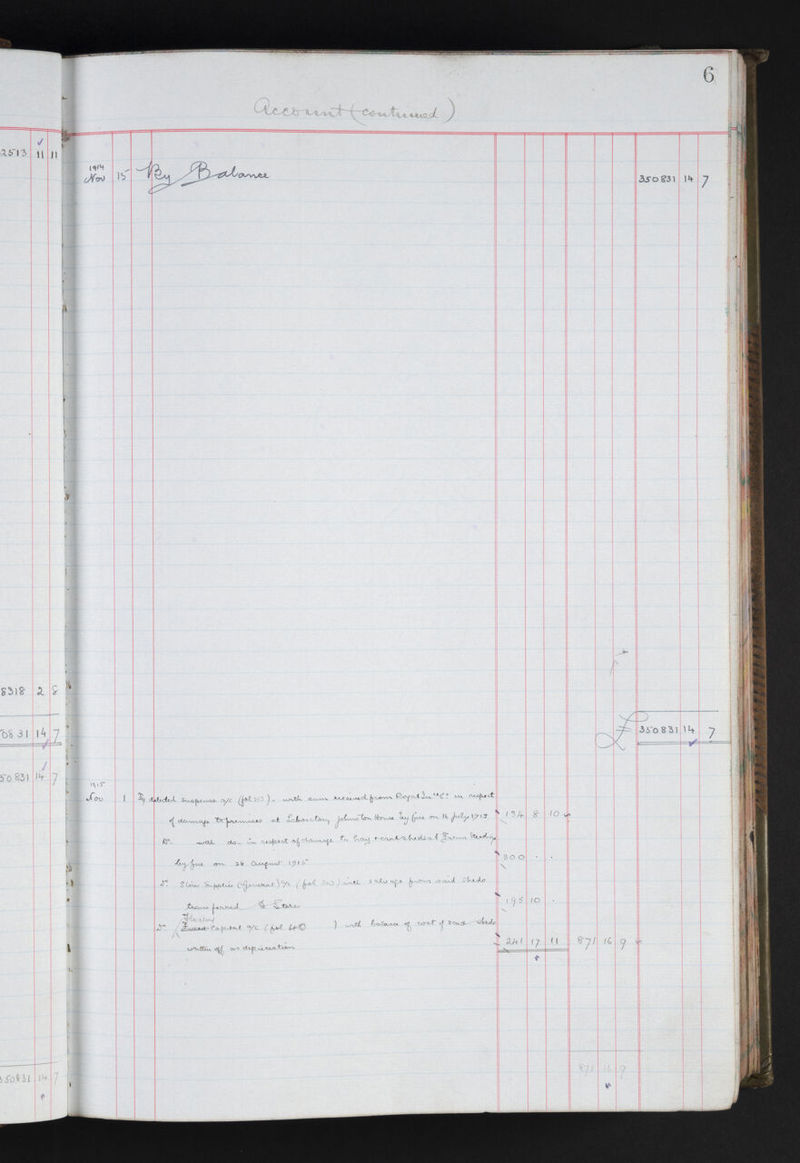 2513 11 11
8318 2 8
0831 14 7
50831 14 7
350831 14 7
6
Account (continued)
1914
Nov 15 By Balance 350831 14 7
£ 350831 14 7
1915
Nov 1 By debited Suspense a/c (fol ), with sum received from Royal Inse Co in respect
of damage to premises at Laboratory Johnston House by fire on 16 July 1915 134 8 10
Do. with do. in respect of damage to hay sheds at
by fire on 26 August 1915 300 . .
Do. Store Supplies (General) a/c (fol ) with salvage from said sheds
transferred to Store 195 10 .
Do. Capital a/c (fol ) with balance of cost of said sheds
written off as depreciation 241 17 11 871 16 9
871 16 9